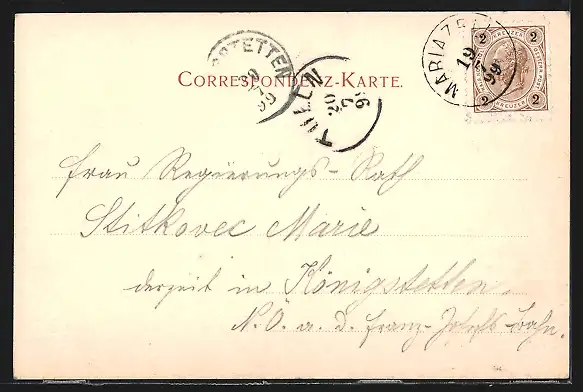 MARIAZELL
19
7
99
2 KREUZER 2
2 KREUZER 2
STETTEN
20
7
99
TULLN
20
7
99
CORRESPONDENZ-KARTE.
Frau Regierungs-Rath
Stitkovec Marie
derzeit in Königstetten.
N.Ö. a. d. Franz-Josefs-Bahn.